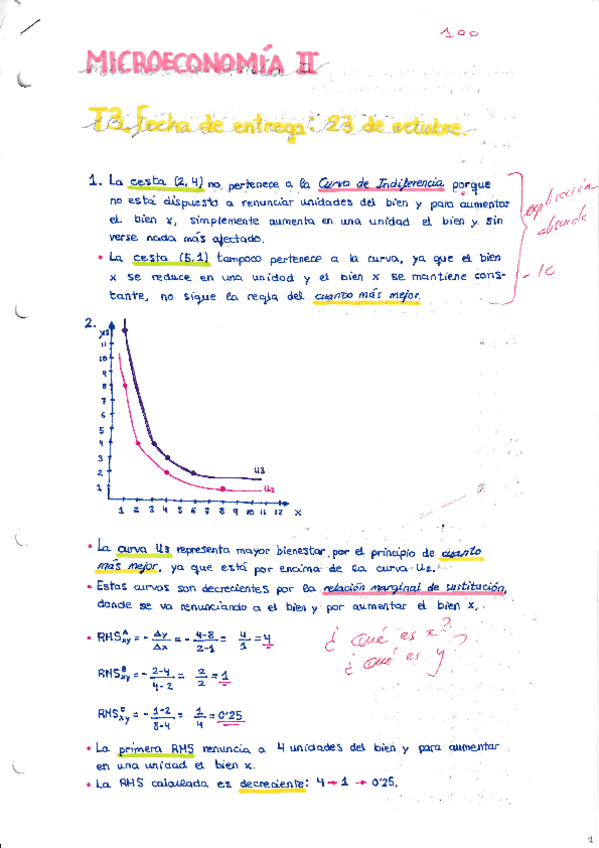 100
MICROECONOMÍA II
T3. Fecha de entrega: 23 de octubre.
1. La cesta (2,4) no pertenece a la Curva de Indiferencia porque
no está dispuesto a renunciar unidades del bien y para aumentar
el bien x, simplemente aumenta en una unidad el bien y sin
verse nada más afectado.
explicación
absurda
• La cesta (5,1) tampoco pertenece a la curva, ya que el bien
x se reduce en una unidad y el bien x se mantiene cons-
tante, no sigue la regla del cuanto más mejor.
2.
11
10
9
8
7
6
5
4
3
2
1
U3
U2
1 2 3 4 5 6 7 8 9 10 11 12 X
• La curva U3 representa mayor bienestar por el principio de cuanto
más mejor, ya que está por encima de la curva U2.
• Estas curvas son decrecientes por la relación marginal de sustitución,
donde se va renunciando a el bien y por aumentar el bien x.
• RMS^A_xy = - Δy/Δx = - 4-8/2-1 = 4/1 = 4
¿Qué es x?
¿Qué es y?
RMS^B_xy = - 2-4/4-2 = 2/2 = 1
RMS^C_xy = - 1-2/8-4 = 1/4 = 0'25
• La primera RMS renuncia a 4 unidades del bien y para aumentar
en una unidad el bien x.
• La RMS calculada es decreciente: 4 → 1 → 0'25.
1